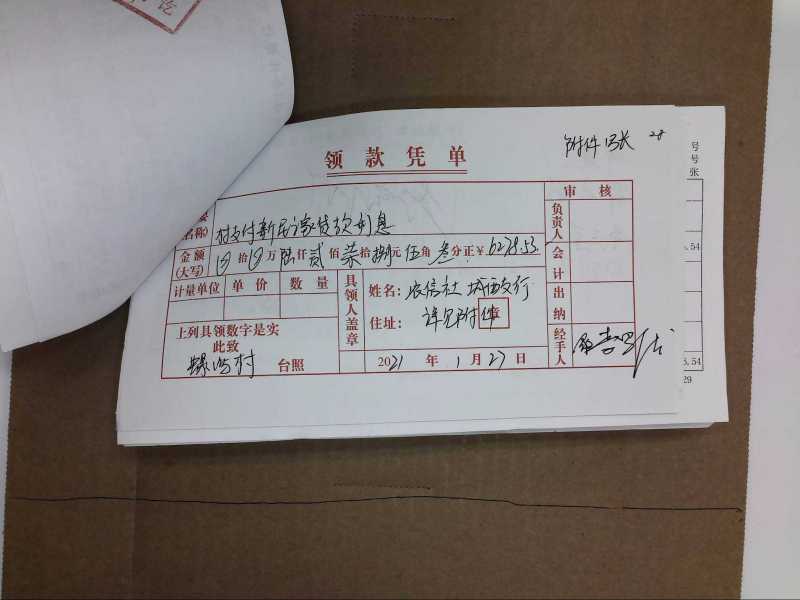 领款凭单
附件 张
28
名称) 村支付新居 贷款利息
审核
负责人
金额(大写) 拾 万陆仟贰佰柒拾捌元伍角叁分正¥ 6278.53
会计
计量单位 单价 数量
具领人盖章
姓名: 农信社 城西支行
住址: 详见附件
章
出纳
上列具领数字是实
此致
村 台照
2021年1月27日
经手人
号
号
张
.54
3,54
29